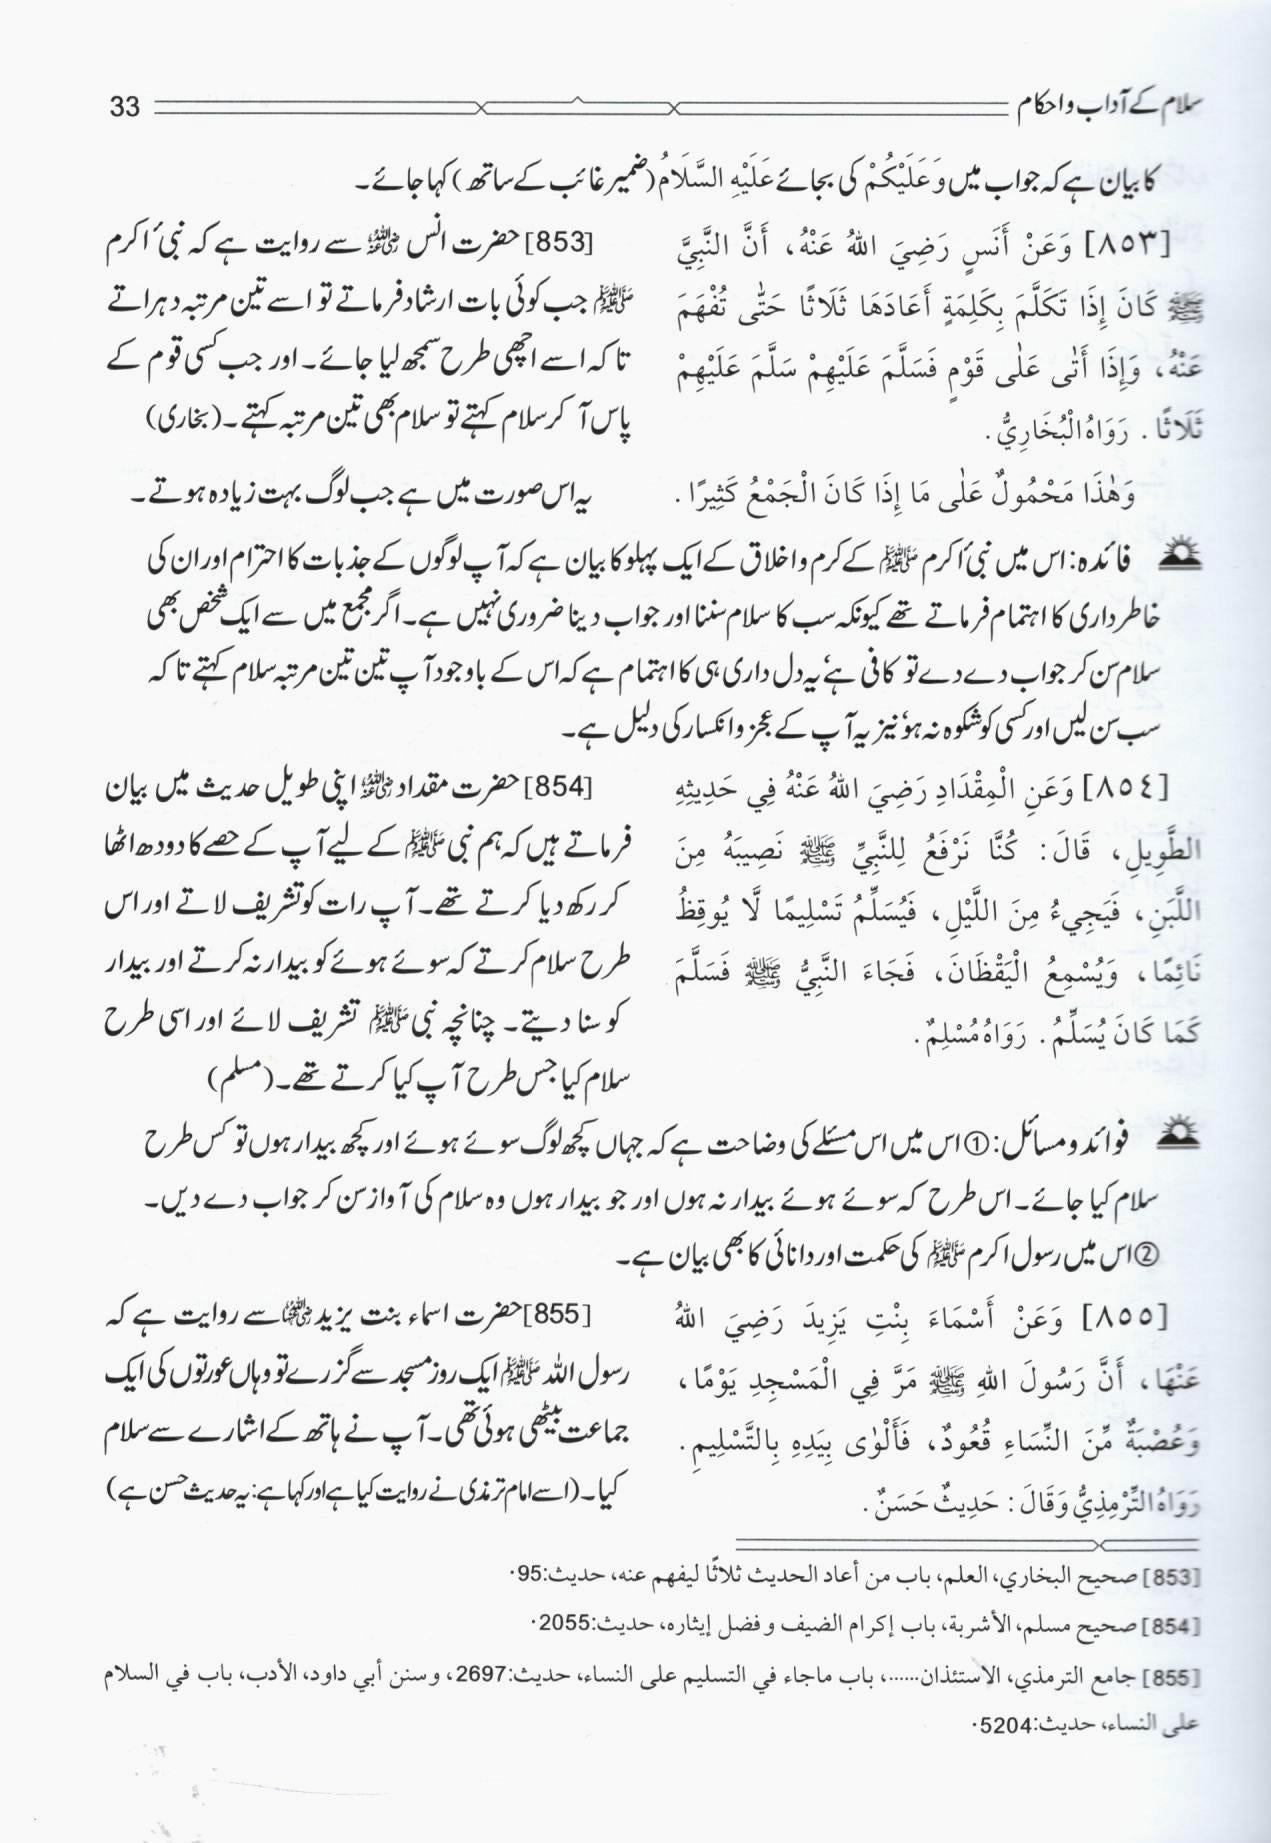 سلام کے آداب و احکام 33
کا بیان ہے کہ جواب میں وَعَلَيْكُمْ کی بجائے عَلَيْهِ السَّلَامُ (ضمیر غائب کے ساتھ) کہا جائے۔
[٨٥٣] وَعَنْ أَنَسٍ رَضِيَ اللهُ عَنْهُ، أَنَّ النَّبِيَّ
ﷺ كَانَ إِذَا تَكَلَّمَ بِكَلِمَةٍ أَعَادَهَا ثَلَاثًا حَتّٰى تُفْهَمَ
عَنْهُ، وَإِذَا أَتٰى عَلٰى قَوْمٍ فَسَلَّمَ عَلَيْهِمْ سَلَّمَ عَلَيْهِمْ
ثَلَاثًا. رَوَاهُ الْبُخَارِيُّ.
وَهٰذَا مَحْمُولٌ عَلٰى مَا إِذَا كَانَ الْجَمْعُ كَثِيرًا.
[853] حضرت انس ؓ سے روایت ہے کہ نبیٔ اکرم
ﷺ جب کوئی بات ارشاد فرماتے تو اسے تین مرتبہ دہراتے
تاکہ اسے اچھی طرح سمجھ لیا جائے۔ اور جب کسی قوم کے
پاس آ کر سلام کہتے تو سلام بھی تین مرتبہ کہتے۔ (بخاری)
یہ اس صورت میں ہے جب لوگ بہت زیادہ ہوتے۔
فائدہ: اس میں نبیٔ اکرم ﷺ کے کرم و اخلاق کے ایک پہلو کا بیان ہے کہ آپ لوگوں کے جذبات کا احترام اور ان کی
خاطر داری کا اہتمام فرماتے تھے کیونکہ سب کا سلام سننا اور جواب دینا ضروری نہیں ہے۔ اگر مجمع میں سے ایک شخص بھی
سلام سن کر جواب دے دے تو کافی ہے، یہ دل داری ہی کا اہتمام ہے کہ اس کے باوجود آپ تین تین مرتبہ سلام کہتے تاکہ
سب سن لیں اور کسی کو شکوہ نہ ہو، نیز یہ آپ کے عجز و انکسار کی دلیل ہے۔
[٨٥٤] وَعَنِ الْمِقْدَادِ رَضِيَ اللهُ عَنْهُ فِي حَدِيثِهِ
الطَّوِيلِ، قَالَ: كُنَّا نَرْفَعُ لِلنَّبِيِّ ﷺ نَصِيبَهُ مِنَ
اللَّبَنِ، فَيَجِيءُ مِنَ اللَّيْلِ، فَيُسَلِّمُ تَسْلِيمًا لَّا يُوقِظُ
نَائِمًا، وَيُسْمِعُ الْيَقْظَانَ، فَجَاءَ النَّبِيُّ ﷺ فَسَلَّمَ
كَمَا كَانَ يُسَلِّمُ. رَوَاهُ مُسْلِمٌ.
[854] حضرت مقداد ؓ اپنی طویل حدیث میں بیان
فرماتے ہیں کہ ہم نبی ﷺ کے لیے آپ کے حصے کا دودھ اٹھا
کر رکھ دیا کرتے تھے۔ آپ رات کو تشریف لاتے اور اس
طرح سلام کرتے کہ سوئے ہوئے کو بیدار نہ کرتے اور بیدار
کو سنا دیتے۔ چنانچہ نبی ﷺ تشریف لائے اور اسی طرح
سلام کیا جس طرح آپ کیا کرتے تھے۔ (مسلم)
فوائد و مسائل: ① اس میں اس مسئلے کی وضاحت ہے کہ جہاں کچھ لوگ سوئے ہوئے اور کچھ بیدار ہوں تو کس طرح
سلام کیا جائے۔ اس طرح کہ سوئے ہوئے بیدار نہ ہوں اور جو بیدار ہوں وہ سلام کی آواز سن کر جواب دے دیں۔
② اس میں رسول اکرم ﷺ کی حکمت اور دانائی کا بھی بیان ہے۔
[٨٥٥] وَعَنْ أَسْمَاءَ بِنْتِ يَزِيدَ رَضِيَ اللهُ
عَنْهَا، أَنَّ رَسُولَ اللهِ ﷺ مَرَّ فِي الْمَسْجِدِ يَوْمًا،
وَعُصْبَةٌ مِّنَ النِّسَاءِ قُعُودٌ، فَأَلْوٰى بِيَدِهِ بِالتَّسْلِيمِ.
رَوَاهُ التِّرْمِذِيُّ وَقَالَ: حَدِيثٌ حَسَنٌ.
[855] حضرت اسماء بنت یزید ؓ سے روایت ہے کہ
رسول اللہ ﷺ ایک روز مسجد سے گزرے تو وہاں عورتوں کی ایک
جماعت بیٹھی ہوئی تھی۔ آپ نے ہاتھ کے اشارے سے سلام
کیا۔ (اسے امام ترمذی نے روایت کیا ہے اور کہا ہے: یہ حدیث حسن ہے)
[853] صحيح البخاري، العلم، باب من أعاد الحديث ثلاثًا ليفهم عنه، حديث:95.
[854] صحيح مسلم، الأشربة، باب إكرام الضيف وفضل إيثاره، حديث:2055.
[855] جامع الترمذي، الاستئذان......، باب ماجاء في التسليم على النساء، حديث:2697، وسنن أبي داود، الأدب، باب في السلام
على النساء، حديث:5204.